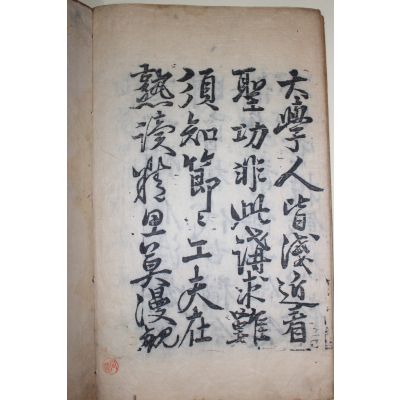 大學人皆淺近看
聖功非此講求難
須知節〻工夫在
熟讀精思莫漫觀